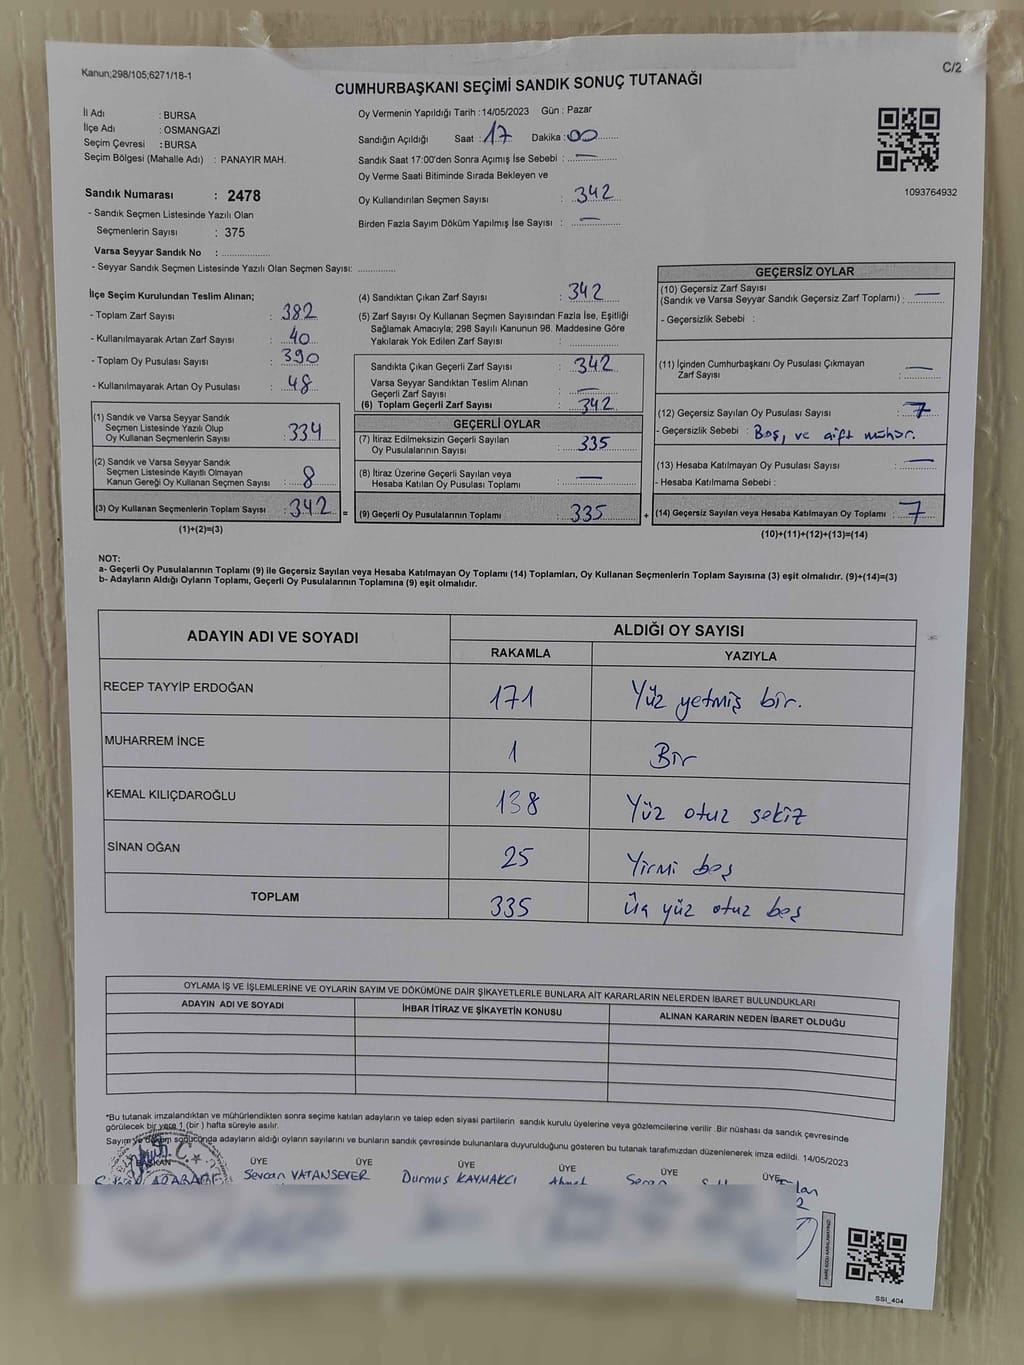 Kanun;298/105,6271/18-1
C/2
CUMHURBAŞKANI SEÇİMİ SANDIK SONUÇ TUTANAĞI
İl Adı : BURSA
İlçe Adı : OSMANGAZİ
Seçim Çevresi : BURSA
Seçim Bölgesi (Mahalle Adı) : PANAYIR MAH.
Sandık Numarası : 2478
- Sandık Seçmen Listesinde Yazılı Olan
Seçmenlerin Sayısı : 375
Varsa Seyyar Sandık No : ..................
- Seyyar Sandık Seçmen Listesinde Yazılı Olan Seçmen Sayısı: .............
Oy Vermenin Yapıldığı Tarih :14/05/2023 Gün : Pazar
Sandığın Açıldığı Saat : 17 Dakika : 00
Sandık Saat 17:00'den Sonra Açımış İse Sebebi : —
Oy Verme Saati Bitiminde Sırada Bekleyen ve
Oy Kullandırılan Seçmen Sayısı : 342
Birden Fazla Sayım Döküm Yapılmış İse Sayısı : —
1093764932
İlçe Seçim Kurulundan Teslim Alınan;
- Toplam Zarf Sayısı : 382
- Kullanılmayarak Artan Zarf Sayısı : 40
- Toplam Oy Pusulası Sayısı : 390
- Kullanılmayarak Artan Oy Pusulası : 48
(1) Sandık ve Varsa Seyyar Sandık
Seçmen Listesinde Yazılı Olup
Oy Kullanan Seçmenlerin Sayısı : 334
(2) Sandık ve Varsa Seyyar Sandık
Seçmen Listesinde Kayıtlı Olmayan
Kanun Gereği Oy Kullanan Seçmen Sayısı : 8
(3) Oy Kullanan Seçmenlerin Toplam Sayısı : 342 =
(1)+(2)=(3)
(4) Sandıktan Çıkan Zarf Sayısı : 342
(5) Zarf Sayısı Oy Kullanan Seçmen Sayısından Fazla İse, Eşitliği
Sağlamak Amacıyla; 298 Sayılı Kanunun 98. Maddesine Göre
Yakılarak Yok Edilen Zarf Sayısı : ..................
Sandıkta Çıkan Geçerli Zarf Sayısı : 342
Varsa Seyyar Sandıktan Teslim Alınan
Geçerli Zarf Sayısı : —
(6) Toplam Geçerli Zarf Sayısı : 342
GEÇERLİ OYLAR
(7) İtiraz Edilmeksizin Geçerli Sayılan
Oy Pusulalarının Sayısı : 335
(8) İtiraz Üzerine Geçerli Sayılan veya
Hesaba Katılan Oy Pusulası Toplamı : —
(9) Geçerli Oy Pusulalarının Toplamı : 335 +
GEÇERSİZ OYLAR
(10) Geçersiz Zarf Sayısı
(Sandık ve Varsa Seyyar Sandık Geçersiz Zarf Toplamı) : —
- Geçersizlik Sebebi :
(11) İçinden Cumhurbaşkanı Oy Pusulası Çıkmayan
Zarf Sayısı : —
(12) Geçersiz Sayılan Oy Pusulası Sayısı : 7
- Geçersizlik Sebebi : Boş, ve çift mühür.
(13) Hesaba Katılmayan Oy Pusulası Sayısı : —
- Hesaba Katılmama Sebebi :
(14) Geçersiz Sayılan veya Hesaba Katılmayan Oy Toplamı : 7
(10)+(11)+(12)+(13)=(14)
NOT:
a- Geçerli Oy Pusulalarının Toplamı (9) ile Geçersiz Sayılan veya Hesaba Katılmayan Oy Toplamı (14) Toplamları, Oy Kullanan Seçmenlerin Toplam Sayısına (3) eşit olmalıdır. (9)+(14)=(3)
b- Adayların Aldığı Oyların Toplamı, Geçerli Oy Pusulalarının Toplamına (9) eşit olmalıdır.
ADAYIN ADI VE SOYADI ALDIĞI OY SAYISI
RAKAMLA YAZIYLA
RECEP TAYYİP ERDOĞAN 171 Yüz yetmiş bir.
MUHARREM İNCE 1 Bir
KEMAL KILIÇDAROĞLU 138 Yüz otuz sekiz
SİNAN OĞAN 25 Yirmi beş
TOPLAM 335 Üç yüz otuz beş
OYLAMA İŞ VE İŞLEMLERİNE VE OYLARIN SAYIM VE DÖKÜMÜNE DAİR ŞİKAYETLERLE BUNLARA AİT KARARLARIN NELERDEN İBARET BULUNDUKLARI
ADAYIN ADI VE SOYADI İHBAR İTİRAZ VE ŞİKAYETİN KONUSU ALINAN KARARIN NEDEN İBARET OLDUĞU
*Bu tutanak imzalandıktan ve mühürlendikten sonra seçime katılan adayların ve talep eden siyasi partilerin sandık kurulu üyelerine veya gözlemcilerine verilir .Bir nüshası da sandık çevresinde
görülecek bir yere 1 (bir ) hafta süreyle asılır.
Sayım ve döküm sonucunda adayların aldığı oyların sayılarını ve bunların sandık çevresinde bulunanlara duyurulduğunu gösteren bu tutanak tarafımızdan düzenlenerek imza edildi. 14/05/2023
BAŞKAN ÜYE ÜYE ÜYE ÜYE ÜYE ÜYE
Sevcan VATANSEVER Durmuş KAYMAKCI Ahmet
SSI_404